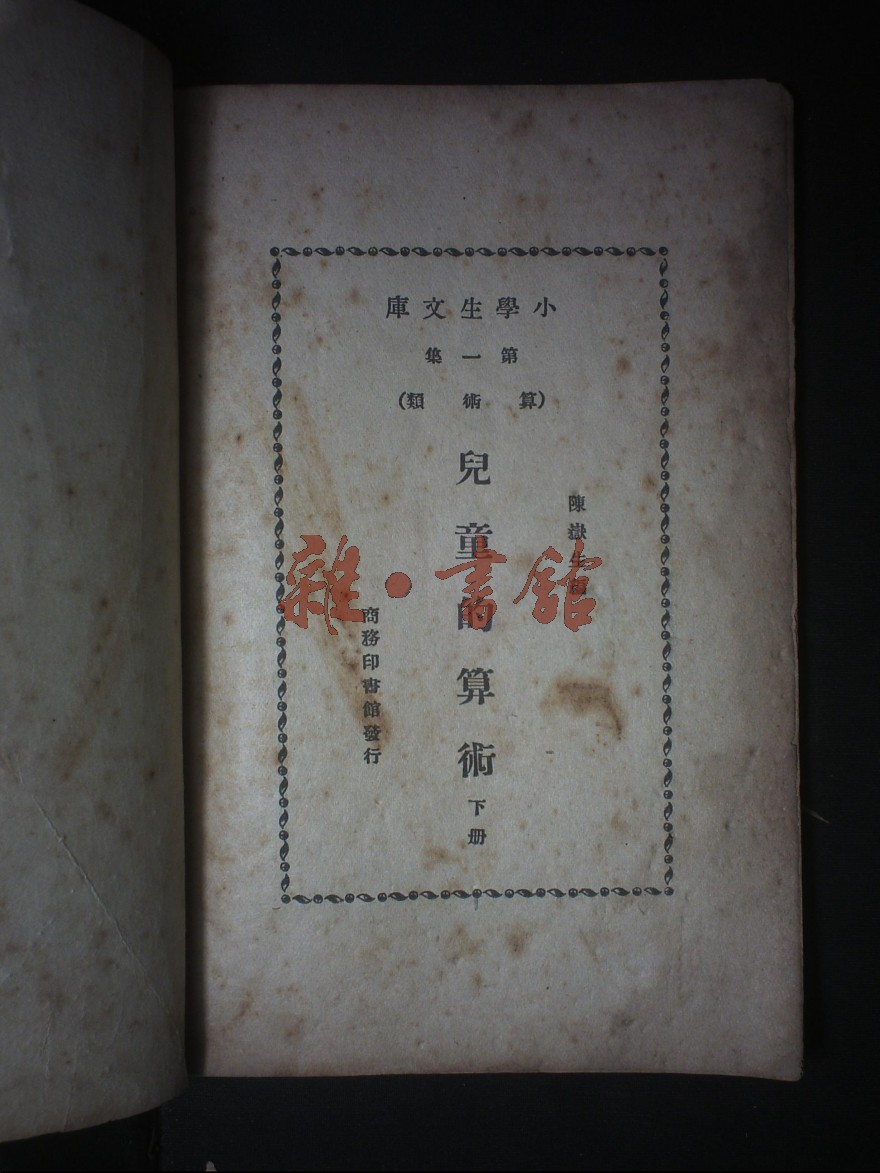 小學生文庫
第一集
(算術類)
陳嶽生編
兒童的算術
下册
商務印書館發行
雜·書館